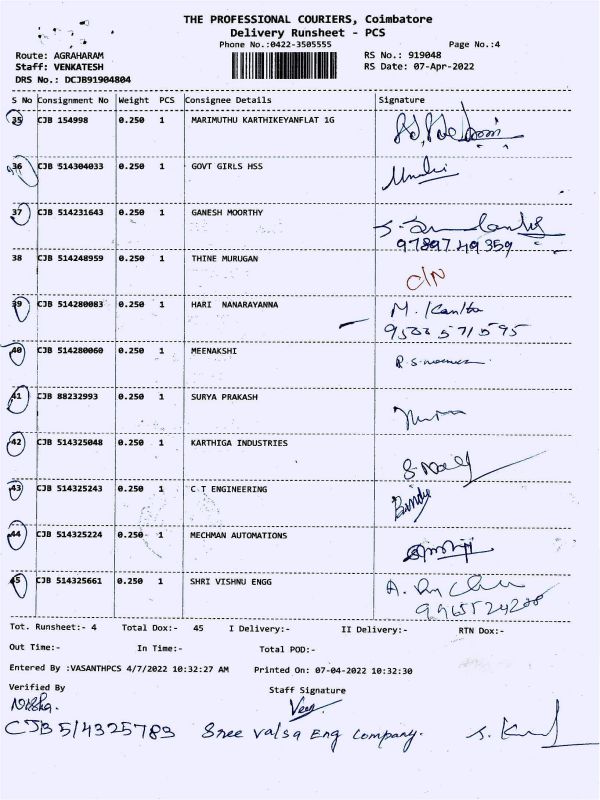 THE PROFESSIONAL COURIERS, Coimbatore
Delivery Runsheet - PCS
Phone No.:0422-3505555 Page No.:4
Route: AGRAHARAM RS No.: 919048
Staff: VENKATESH RS Date: 07-Apr-2022
DRS No.: DCJB91904804
S No Consignment No Weight PCS Consignee Details Signature
35 CJB 154998 0.250 1 MARIMUTHU KARTHIKEYANFLAT 1G
36 CJB 514304033 0.250 1 GOVT GIRLS HSS
37 CJB 514231643 0.250 1 GANESH MOORTHY
9789749359
38 CJB 514248959 0.250 1 THINE MURUGAN C/N
39 CJB 514280083 0.250 1 HARI NANARAYANNA M.
40 CJB 514280060 0.250 1 MEENAKSHI R.S.
41 CJB 88232993 0.250 1 SURYA PRAKASH
42 CJB 514325048 0.250 1 KARTHIGA INDUSTRIES
43 CJB 514325243 0.250 1 C T ENGINEERING
44 CJB 514325224 0.250 1 MECHMAN AUTOMATIONS
45 CJB 514325661 0.250 1 SHRI VISHNU ENGG A.
Tot. Runsheet:- 4 Total Dox:- 45 I Delivery:- II Delivery:- RTN Dox:-
Out Time:- In Time:- Total POD:-
Entered By :VASANTHPCS 4/7/2022 10:32:27 AM Printed On: 07-04-2022 10:32:30
Verified By Staff Signature
Nisha.
CJB 514325783 Sree Valsa Eng Company.